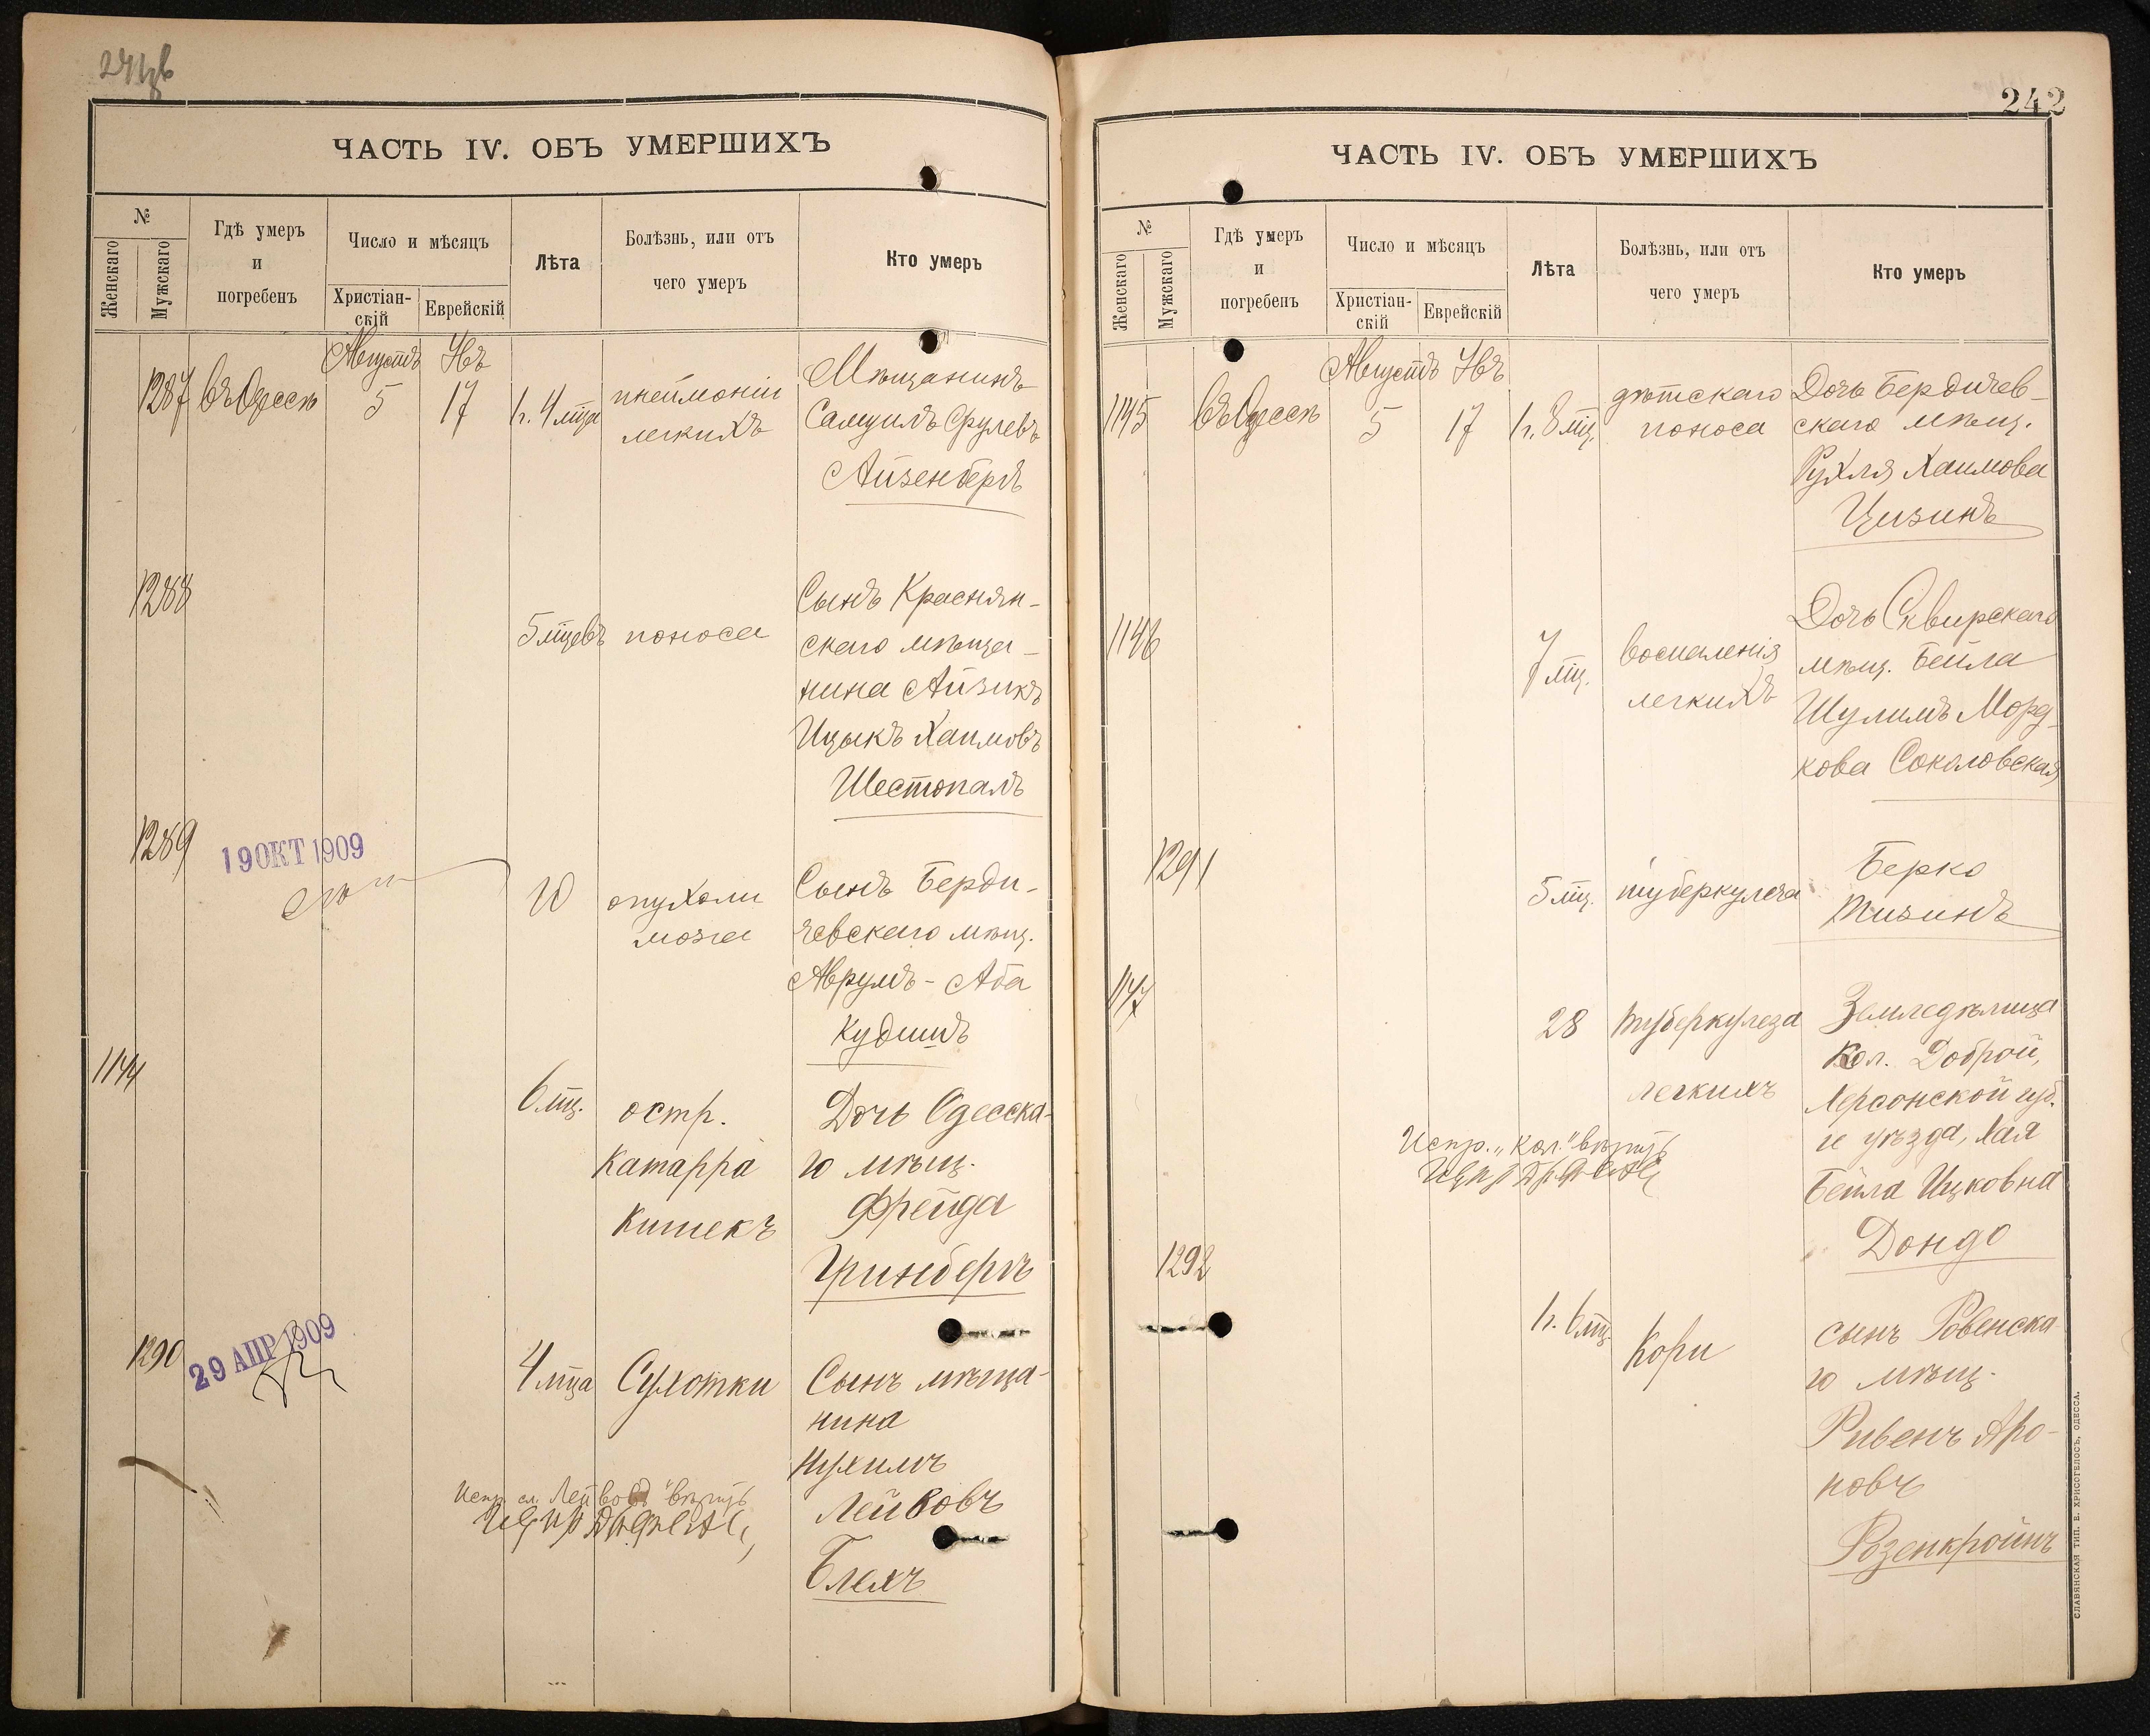 ЧАСТЬ IV. ОБЪ УМЕРШИХЪ
№
Женскаго
Мужскаго
Гдѣ умеръ
и
погребенъ
Число и мѣсяцъ
Христіан-
скій
Еврейскій
Лѣта
Болѣзнь, или отъ
чего умеръ
Кто умеръ
Августъ
Явъ
1287
въ Одессѣ
5
17
1 г. 4 мца
пнеймоніи
легкихъ
Мѣщанинъ
Самуилъ Срулевъ
Айзенбергъ
1288
5 мцевъ
поноса
Сынъ Краснян-
скаго мѣща-
нина Айзикъ
Ицыкъ Хаимовъ
Шестопалъ
1289
19 ОКТ 1909
10
опухоли
мозга
Сынъ Берди-
чевскаго мѣщ.
Аврумъ - Аба
Кудишъ
1144
6 мц.
остр.
Катарра
Кишекъ
Дочь Одесска-
го мѣщ.
Фрейда
Гринбергъ
1290
29 АПР 1909
4 мца
Сухотки
Сынъ мѣща-
нина
Нухимъ
Лейбовъ
Блехъ
Испр. сл. "вѣрить
242
ЧАСТЬ IV. ОБЪ УМЕРШИХЪ
№
Женскаго
Мужскаго
Гдѣ умеръ
и
погребенъ
Число и мѣсяцъ
Христіан-
скій
Еврейскій
Лѣта
Болѣзнь, или отъ
чего умеръ
Кто умеръ
Августъ
Явъ
1145
въ Одессѣ
5
17
1 г. 8 мц.
дѣтскаго
поноса
Дочь Бердичев-
скаго мѣщ.
Рухля Хаимова
Цизинъ
1146
7 мц.
воспаленія
легкихъ
Дочь Сквирскаго
мѣщ. Бейла
Шулимъ Морд-
кова Соколовская
1291
5 мц.
туберкулеза
Берко
Тизинъ
1147
28
туберкулеза
легкихъ
Земледѣлица
Кол. Доброй,
Херсонской губ.
и уѣзда, Хая
Бейла Ицковна
Дондо
Испр. "Кол." вѣрить
1292
1 г. 6 мц.
Кори
сынъ Ровенска
го мѣщ.
Ривенъ Аро-
новъ
Розенкройнъ
СЛАВЯНСКАЯ ТИП. Е. ХРИСОГЕЛОСЪ, ОДЕССА.